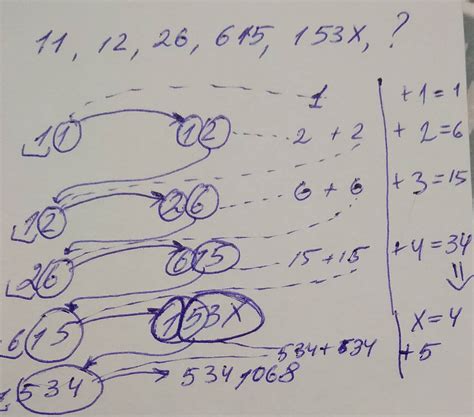 11, 12, 26, 615, 153X, ?
1 + 1 = 1
11 12 2 + 2 + 2 = 6
12 26 6 + 6 + 3 = 15
26 615 15 + 15 + 4 = 34
⇓
6 15 153X X = 4
534 + 534 + 5
1 534 534,1068